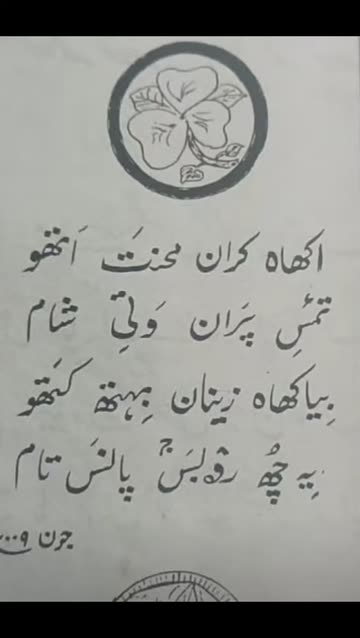 اکھاہ کران محنتَ اَتھو
تمٔسِ پَران وَتِی شام
بِیاکھاہ زینان بِہتھ کَتھو
یِہ چُھ رۄبسَٕ پالنَس تام
جون ۲۰۰۹